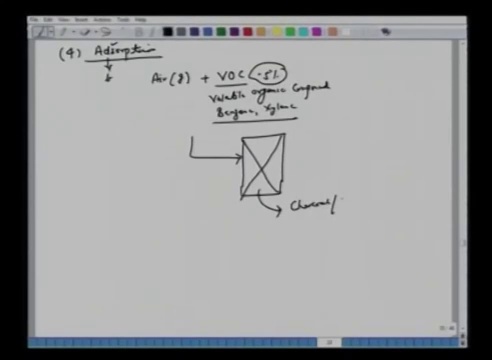 File Edit View Insert Actions Tools Help
(4) Adsorption
Air (g) + VOC (~5%)
Volatile organic Compound
Benzene, Xylene
Charcoal/